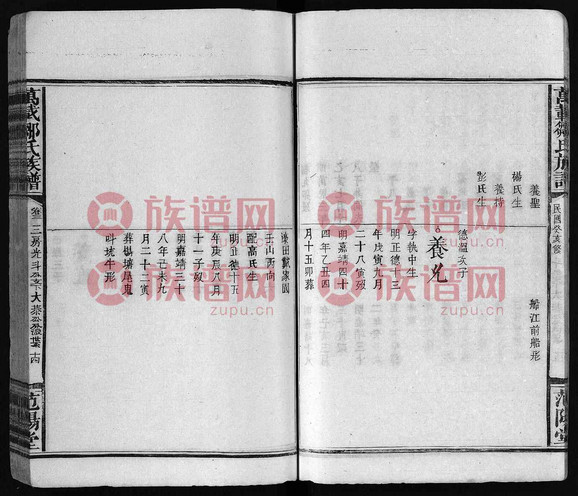 萬載鄒氏族譜
民國癸亥修
范陽堂
養聖
楊氏生
養持
彭氏生
船江前船形
德溫次子
養光
字執中生
明正德十三
年戊寅九月
二十八寅歿
明嘉靖四十
四年乙丑四
月十五卯葬
家園
壬山丙向
配高氏生
明正德十五
年庚辰八月
十二子歿
明嘉靖三十
八年己未九
月二十三寅
葬楊塘尾鬼
叫坑牛形
萬載鄒氏族譜
卷
十四
范陽堂
族谱网
zupu.cn
族谱网
zupu.cn
族谱网
zupu.cn
族谱网
zupu.cn